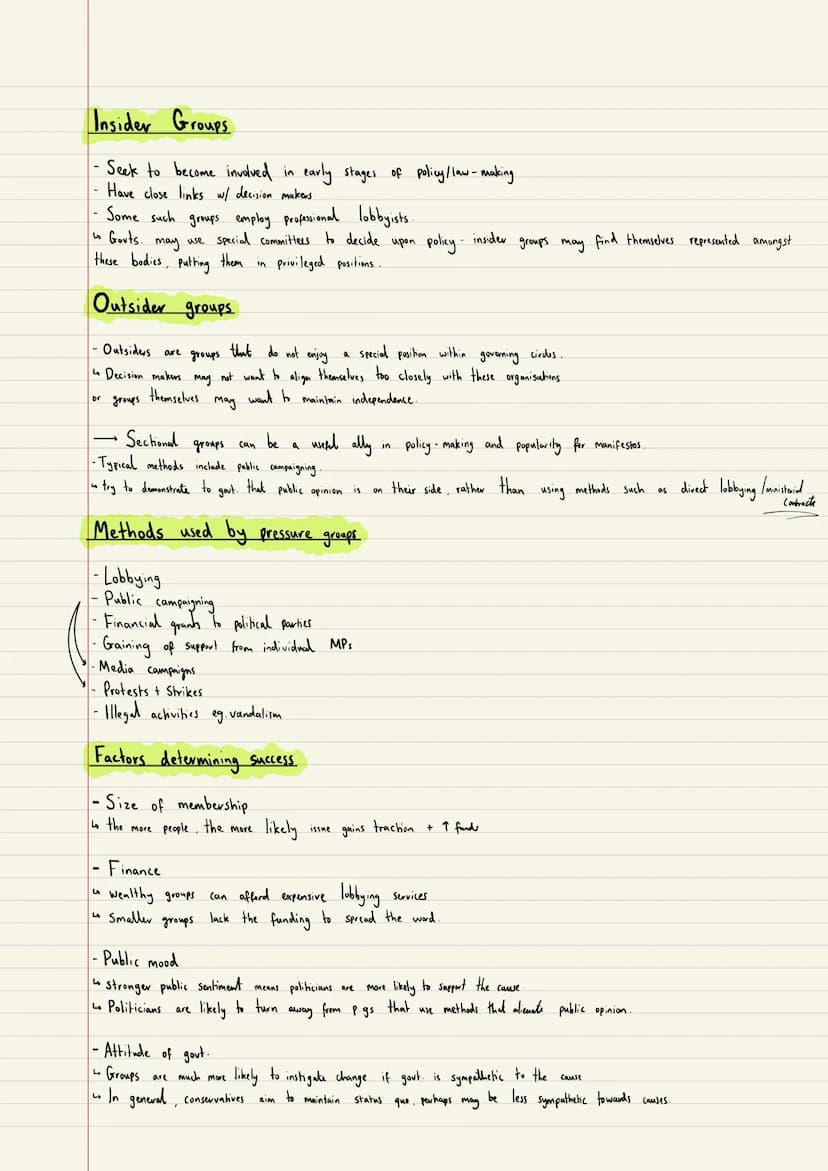 Insider Groups
- Seek to become involved in early stages of policy/law-making
- Have close links w/ decision makers
- Some such groups employ professional lobbyists.
↳ Govts. may use special committees to decide upon policy - insider groups may find themselves represented amongst
these bodies, putting them in privileged positions.
Outsider groups
- Outsiders are groups that do not enjoy a special position within governing circles.
↳ Decision makers may not want to align themselves too closely with these organisations
or groups themselves may want to maintain independence.
→ Sectional groups can be a useful ally in policy-making and popularity for manifestos.
- Typical methods include public campaigning.
↳ try to demonstrate to govt. that public opinion is on their side, rather than using methods such as direct lobbying/ministerial
contracts
Methods used by pressure groups
- Lobbying
- Public campaigning
- Financial grants to political parties
- Gaining of support from individual MPs
- Media campaigns
- Protests + Strikes
- Illegal activities eg. vandalism
Factors determining success
- Size of membership
↳ the more people, the more likely issue gains traction + ↑ funds
- Finance
↳ Wealthy groups can afford expensive lobbying services
↳ Smaller groups lack the funding to spread the word.
- Public mood
↳ Stronger public sentiment means politicians are more likely to support the cause
↳ Politicians are likely to turn away from p.gs that use methods that alienate public opinion.
- Attitude of govt.
↳ Groups are much more likely to instigate change if govt. is sympathetic to the cause
↳ In general, conservatives aim to maintain status quo, perhaps may be less sympathetic towards causes.